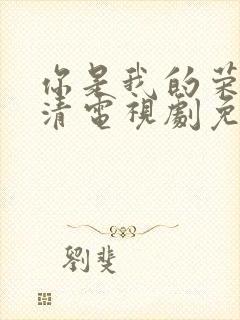 你是我的荣
清電視劇免
劉斐